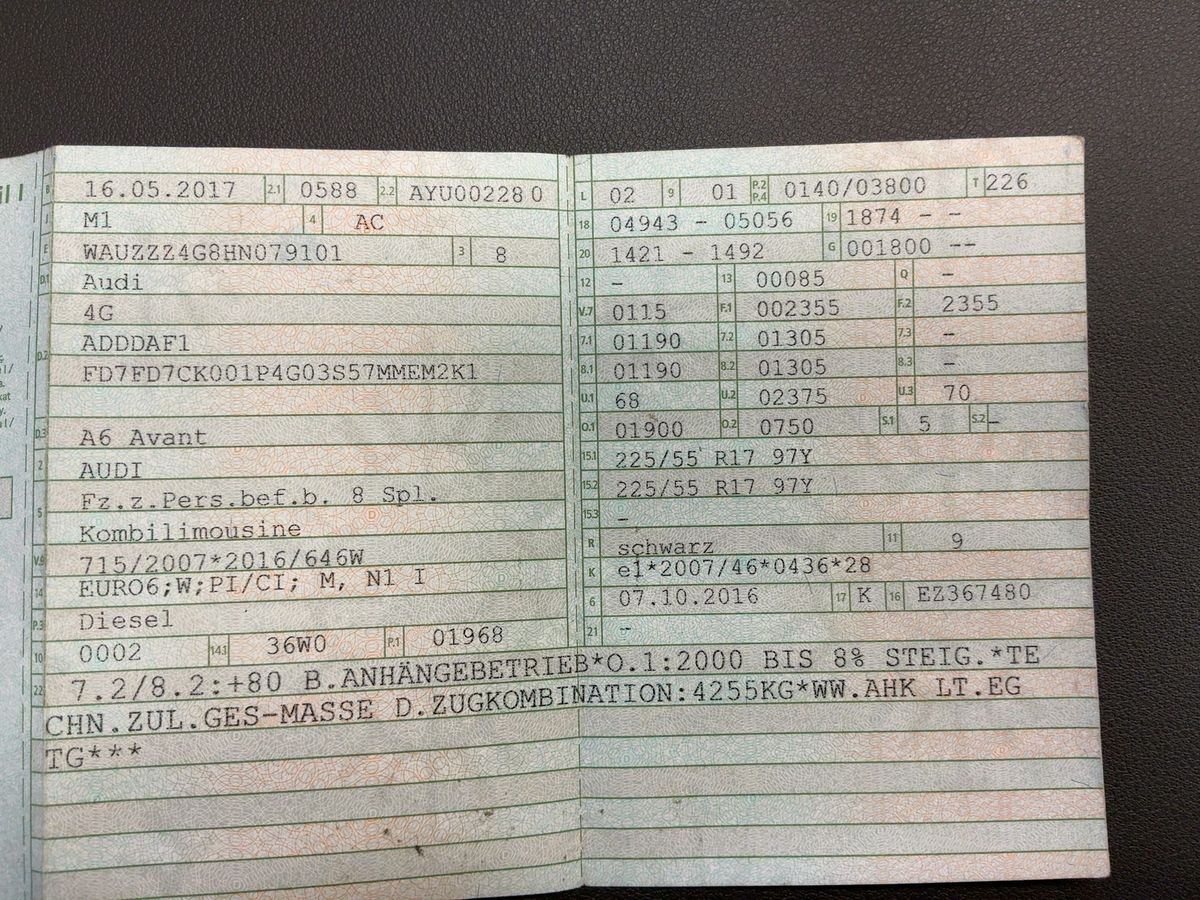 il I
B 16.05.2017 2.1 0588 2.2 AYU002280
J M1 4 AC
E WAUZZZ4G8HN079101 3 8
D.1 Audi
4G
D.2 ADDDAF1
FD7FD7CK001P4G03S57MMEM2K1
D.3 A6 Avant
2 AUDI
5 Fz.z.Pers.bef.b. 8 Spl.
Kombilimousine
V.9 715/2007*2016/646W
14 EURO6;W;PI/CI; M, N1 I
P.3 Diesel
10 0002 14.1 36W0 P.1 01968
L 02 9 01 P.2 P.4 0140/03800 T 226
18 04943 - 05056 19 1874 - -
20 1421 - 1492 G 001800 --
12 - 13 00085 Q -
V.7 0115 F.1 002355 F.2 2355
7.1 01190 7.2 01305 7.3 -
8.1 01190 8.2 01305 8.3 -
U.1 68 U.2 02375 U.3 70
O.1 01900 O.2 0750 S.1 5 S.2 -
15.1 225/55 R17 97Y
15.2 225/55 R17 97Y
15.3 -
R schwarz 11 9
K e1*2007/46*0436*28
6 07.10.2016 17 K 16 EZ367480
21 -
22 7.2/8.2:+80 B.ANHÄNGEBETRIEB*O.1:2000 BIS 8% STEIG.*TE
CHN.ZUL.GES-MASSE D.ZUGKOMBINATION:4255KG*WW.AHK LT.EG
TG***